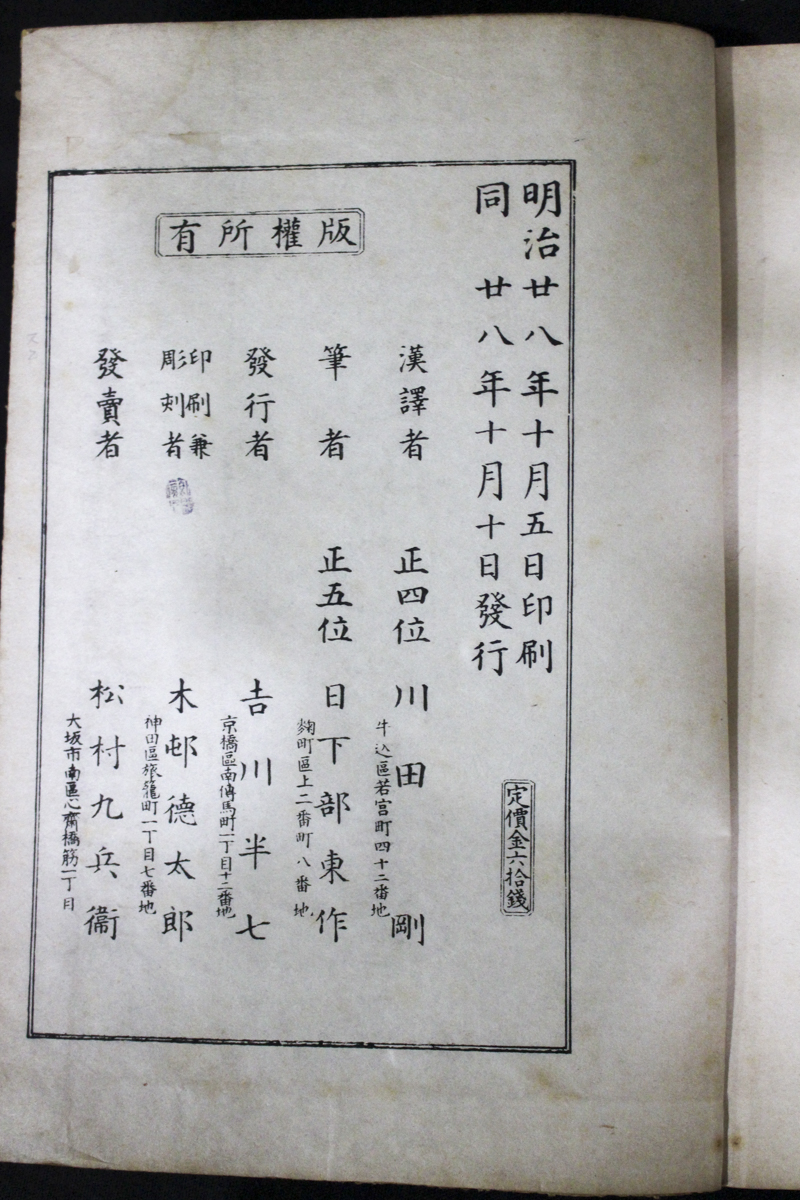 明治廿八年十月五日印刷
同　廿八年十月十日發行
定價金六拾錢
版權所有
漢譯者　正四位　川田剛
牛込區若宮町四十二番地
筆者　正五位　日下部東作
麴町區上二番町八番地
發行者　吉川半七
京橋區南傳馬町一丁目十二番地
印刷兼
彫刻者　木邨德太郎
神田區旅籠町一丁目七番地
發賣者　松村九兵衞
大坂市南區心齋橋筋一丁目